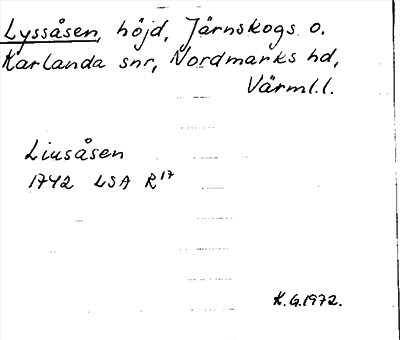 Lyssåsen, höjd, Järnskogs o.
Karlanda snr, Nordmarks hd,
Värml.l.
Liusåsen
1742 LSA R17
K.G.1972.